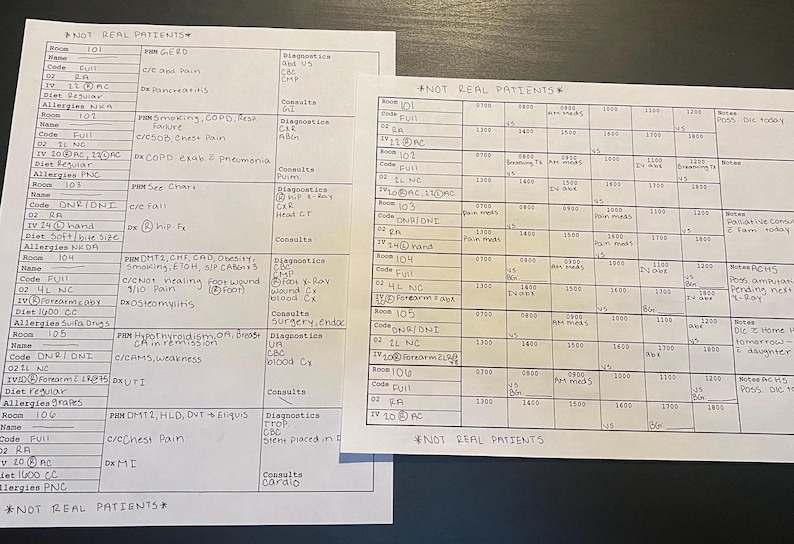 *NOT REAL PATIENTS*
Room 101
Name
Code Full
O2 RA
IV 22 (R) AC
Diet Regular
Allergies NKA
PMH GERD
C/C abd Pain
Dx Pancreatitis
Diagnostics
abd US
CBC
CMP
Consults
GI
Room 102
Name
Code Full
O2 2L NC
IV 20 (R) AC, 22 (L) AC
Diet Regular
Allergies PNC
PMH Smoking, COPD, Resp.
Failure
C/C SOB, Chest Pain
Dx COPD exab. c̄ pneumonia
Diagnostics
CXR
ABG
Consults
Pulm.
Room 103
Name
Code DNR/DNI
O2 RA
IV 24 (L) hand
Diet Soft/bite size
Allergies NKDA
PMH See Chart
C/C Fall
Dx (R) hip Fx
Diagnostics
(R) hip X-Ray
CXR
Head CT
Consults
Room 104
Name
Code Full
O2 4L NC
IV (R) Forearm c̄ abx
Diet 1600 CC
Allergies Sulfa Drugs
PMH DMT2, CHF, CAD, Obesity,
Smoking, ETOH, S/P CABG x3
C/C Not healing foot wound
9/10 Pain (R) Foot)
Dx Osteomylitis
Diagnostics
CBC
CMP
(R) Foot X-Ray
wound Cx
blood Cx
Consults
Surgery, endoc
Room 105
Name
Code DNR/DNI
O2 2L NC
IV 20 (R) Forearm c̄ LR@75
Diet regular
Allergies grapes
PMH Hypothyroidism, OA, Breast
CA in remission
C/C AMS, weakness
Dx UTI
Diagnostics
UA
CBC
blood Cx
Consults
Room 106
Name
Code Full
O2 RA
IV 20 (R) AC
Diet 1600 CC
Allergies PNC
PMH DMT2, HLD, DVT → Eliquis
C/C Chest Pain
Dx MI
Diagnostics
TROP.
CBC
Stent placed in
Consults
Cardio
*NOT REAL PATIENTS*
*NOT REAL PATIENTS*
Room 101
Code Full
O2 RA
IV 22 (R) AC
0700 0800 0900 1000 1100 1200
VS AM Meds VS
1300 1400 1500 1600 1700 1800
VS
Notes
Poss. D/C today
Room 102
Code Full
O2 2L NC
IV 20 (R) AC, 22 (L) AC
0700 0800 0900 1000 1100 1200
Breathing Tx AM Meds IV abx Breathing Tx
VS VS
1300 1400 1500 1600 1700 1800
IV abx
VS
Notes
Room 103
Code DNR/DNI
O2 RA
IV 24 (L) hand
0700 0800 0900 1000 1100 1200
Pain meds Pain meds
1300 1400 1500 1600 1700 1800
Pain meds Pain meds
Notes
Palliative Consult
c̄ Fam today
Room 104
Code Full
O2 4L NC
IV 20 (R) Forearm c̄ abx
0700 0800 0900 1000 1100 1200
VS AM Meds IV abx VS
BG: BG:
1300 1400 1500 1600 1700 1800
IV abx IV abx
VS BG:
Notes ACHS
Poss. amputation
Pending next
X-Ray
Room 105
Code DNR/DNI
O2 2L NC
IV 20 (R) Forearm c̄ LR@75
0700 0800 0900 1000 1100 1200
AM Meds abx
VS
1300 1400 1500 1600 1700 1800
abx
VS
Notes
D/C c̄ Home H
tomorrow –
c̄ daughter
Room 106
Code Full
O2 RA
IV 20 (L) AC
0700 0800 0900 1000 1100 1200
VS AM Meds VS
BG: BG:
1300 1400 1500 1600 1700 1800
VS BG:
Notes ACHS
Poss. D/C to
*NOT REAL PATIENTS